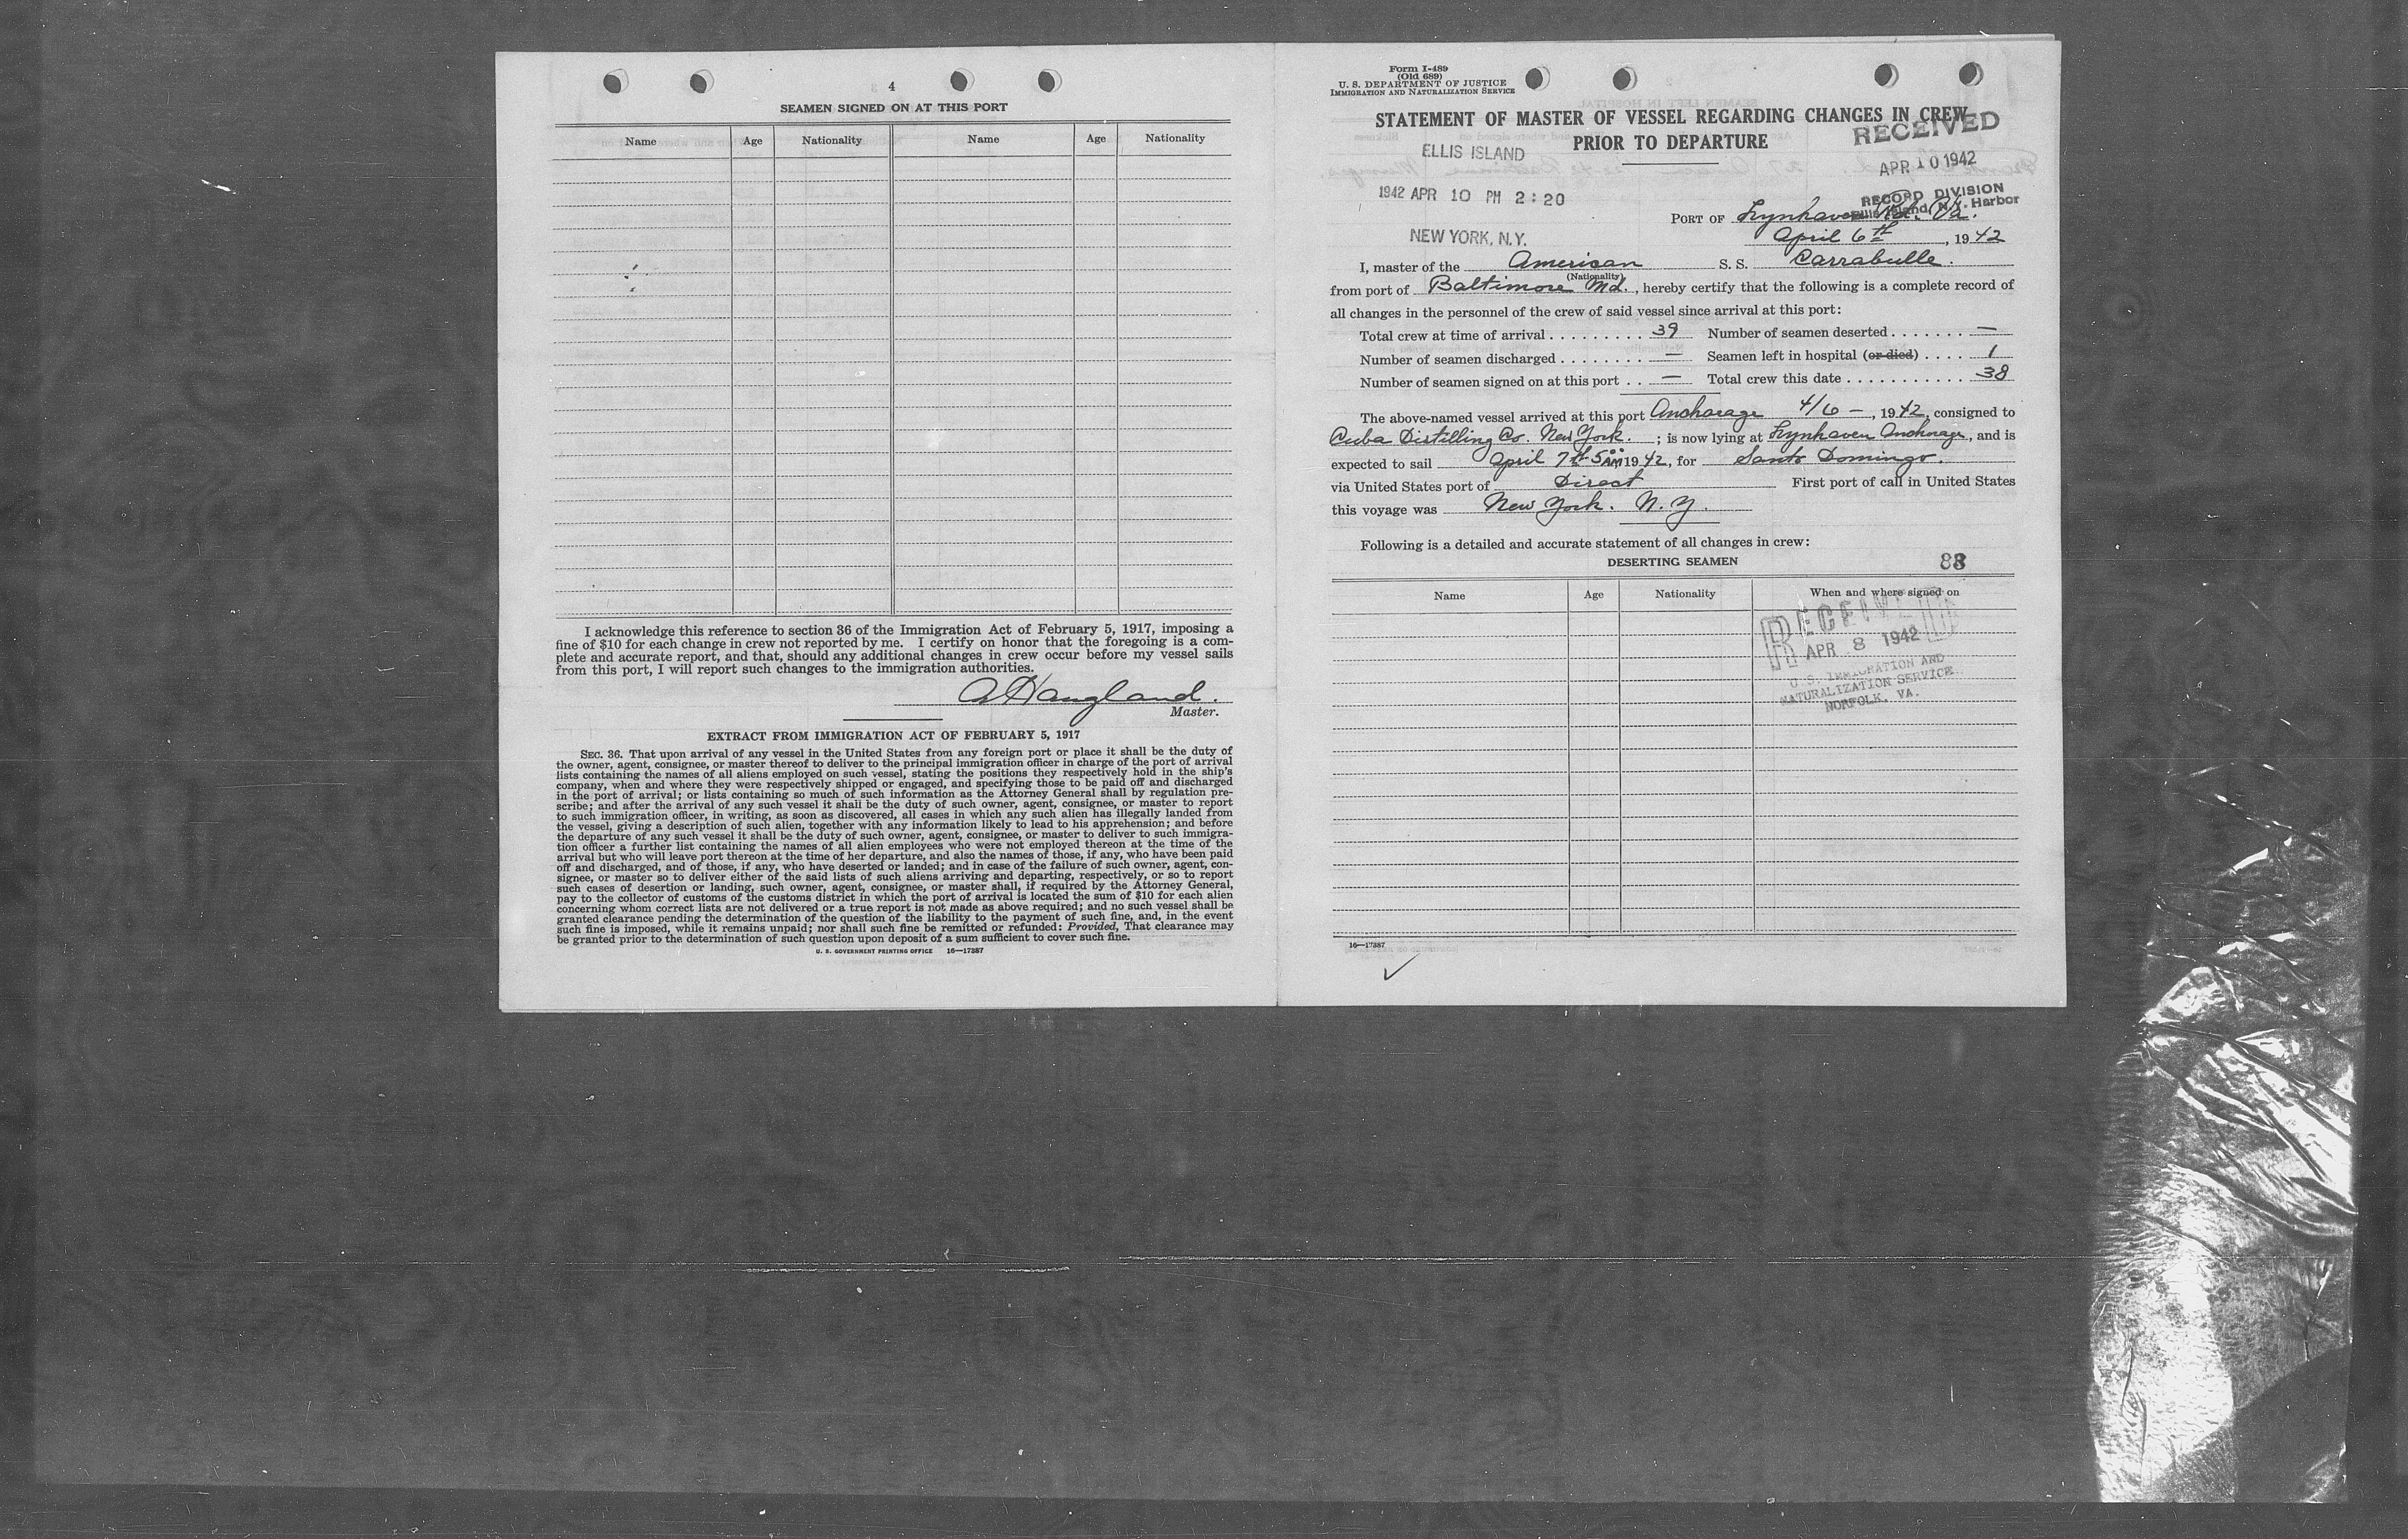 4
SEAMEN SIGNED ON AT THIS PORT
Name Age Nationality Name Age Nationality
I acknowledge this reference to section 36 of the Immigration Act of February 5, 1917, imposing a
fine of $10 for each change in crew not reported by me. I certify on honor that the foregoing is a com-
plete and accurate report, and that, should any additional changes in crew occur before my vessel sails
from this port, I will report such changes to the immigration authorities.
A Haugland.
Master.
EXTRACT FROM IMMIGRATION ACT OF FEBRUARY 5, 1917
SEC. 36. That upon arrival of any vessel in the United States from any foreign port or place it shall be the duty of
the owner, agent, consignee, or master thereof to deliver to the principal immigration officer in charge of the port of arrival
lists containing the names of all aliens employed on such vessel, stating the positions they respectively hold in the ship's
company, when and where they were respectively shipped or engaged, and specifying those to be paid off and discharged
in the port of arrival; or lists containing so much of such information as the Attorney General shall by regulation pre-
scribe; and after the arrival of any such vessel it shall be the duty of such owner, agent, consignee, or master to report
to such immigration officer, in writing, as soon as discovered, all cases in which any such alien has illegally landed from
the vessel, giving a description of such alien, together with any information likely to lead to his apprehension; and before
the departure of any such vessel it shall be the duty of such owner, agent, consignee, or master to deliver to such immigra-
tion officer a further list containing the names of all alien employees who were not employed thereon at the time of the
arrival but who will leave port thereon at the time of her departure, and also the names of those, if any, who have been paid
off and discharged, and of those, if any, who have deserted or landed; and in case of the failure of such owner, agent, con-
signee, or master so to deliver either of the said lists of such aliens arriving and departing, respectively, or so to report
such cases of desertion or landing, such owner, agent, consignee, or master shall, if required by the Attorney General,
pay to the collector of customs of the customs district in which the port of arrival is located the sum of $10 for each alien
concerning whom correct lists are not delivered or a true report is not made as above required; and no such vessel shall be
granted clearance pending the determination of the question of the liability to the payment of such fine, and, in the event
such fine is imposed, while it remains unpaid; nor shall such fine be remitted or refunded: Provided, That clearance may
be granted prior to the determination of such question upon deposit of a sum sufficient to cover such fine.
U. S. GOVERNMENT PRINTING OFFICE 16—17387
Form I-489
(Old 689)
U. S. DEPARTMENT OF JUSTICE
IMMIGRATION AND NATURALIZATION SERVICE
STATEMENT OF MASTER OF VESSEL REGARDING CHANGES IN CREW
PRIOR TO DEPARTURE
RECEIVED
APR 10 1942
RECORD DIVISION
Ellis Island, N.Y. Harbor
ELLIS ISLAND
1942 APR 10 PM 2:20
NEW YORK, N.Y.
PORT OF Lynhaven Rd. Va.
April 6th, 1942
I, master of the American S. S. Carrabulle.
(Nationality)
from port of Baltimore Md., hereby certify that the following is a complete record of
all changes in the personnel of the crew of said vessel since arrival at this port:
Total crew at time of arrival . . . . . . . . . 39 Number of seamen deserted . . . . . . . —
Number of seamen discharged . . . . . . . . — Seamen left in hospital (or died) . . . . 1
Number of seamen signed on at this port . . — Total crew this date . . . . . . . . . . . 38
The above-named vessel arrived at this port Anchorage 4/6 —, 1942, consigned to
Cuba Distilling Co. New York. ; is now lying at Lynhaven Anchorage, and is
expected to sail April 7th 5 00 AM 1942, for Santo Domingo.
via United States port of Direct First port of call in United States
this voyage was New York. N.Y.
Following is a detailed and accurate statement of all changes in crew:
DESERTING SEAMEN
88
Name Age Nationality When and where signed on
RECEIVED
APR 8 1942
U. S. IMMIGRATION AND
NATURALIZATION SERVICE
NORFOLK, VA.
16—17387